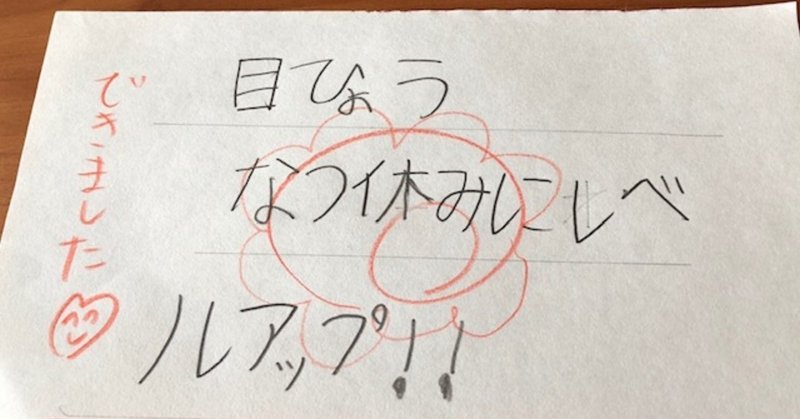 目ひょう
なつ休みにレベ
ルアップ!!
できました